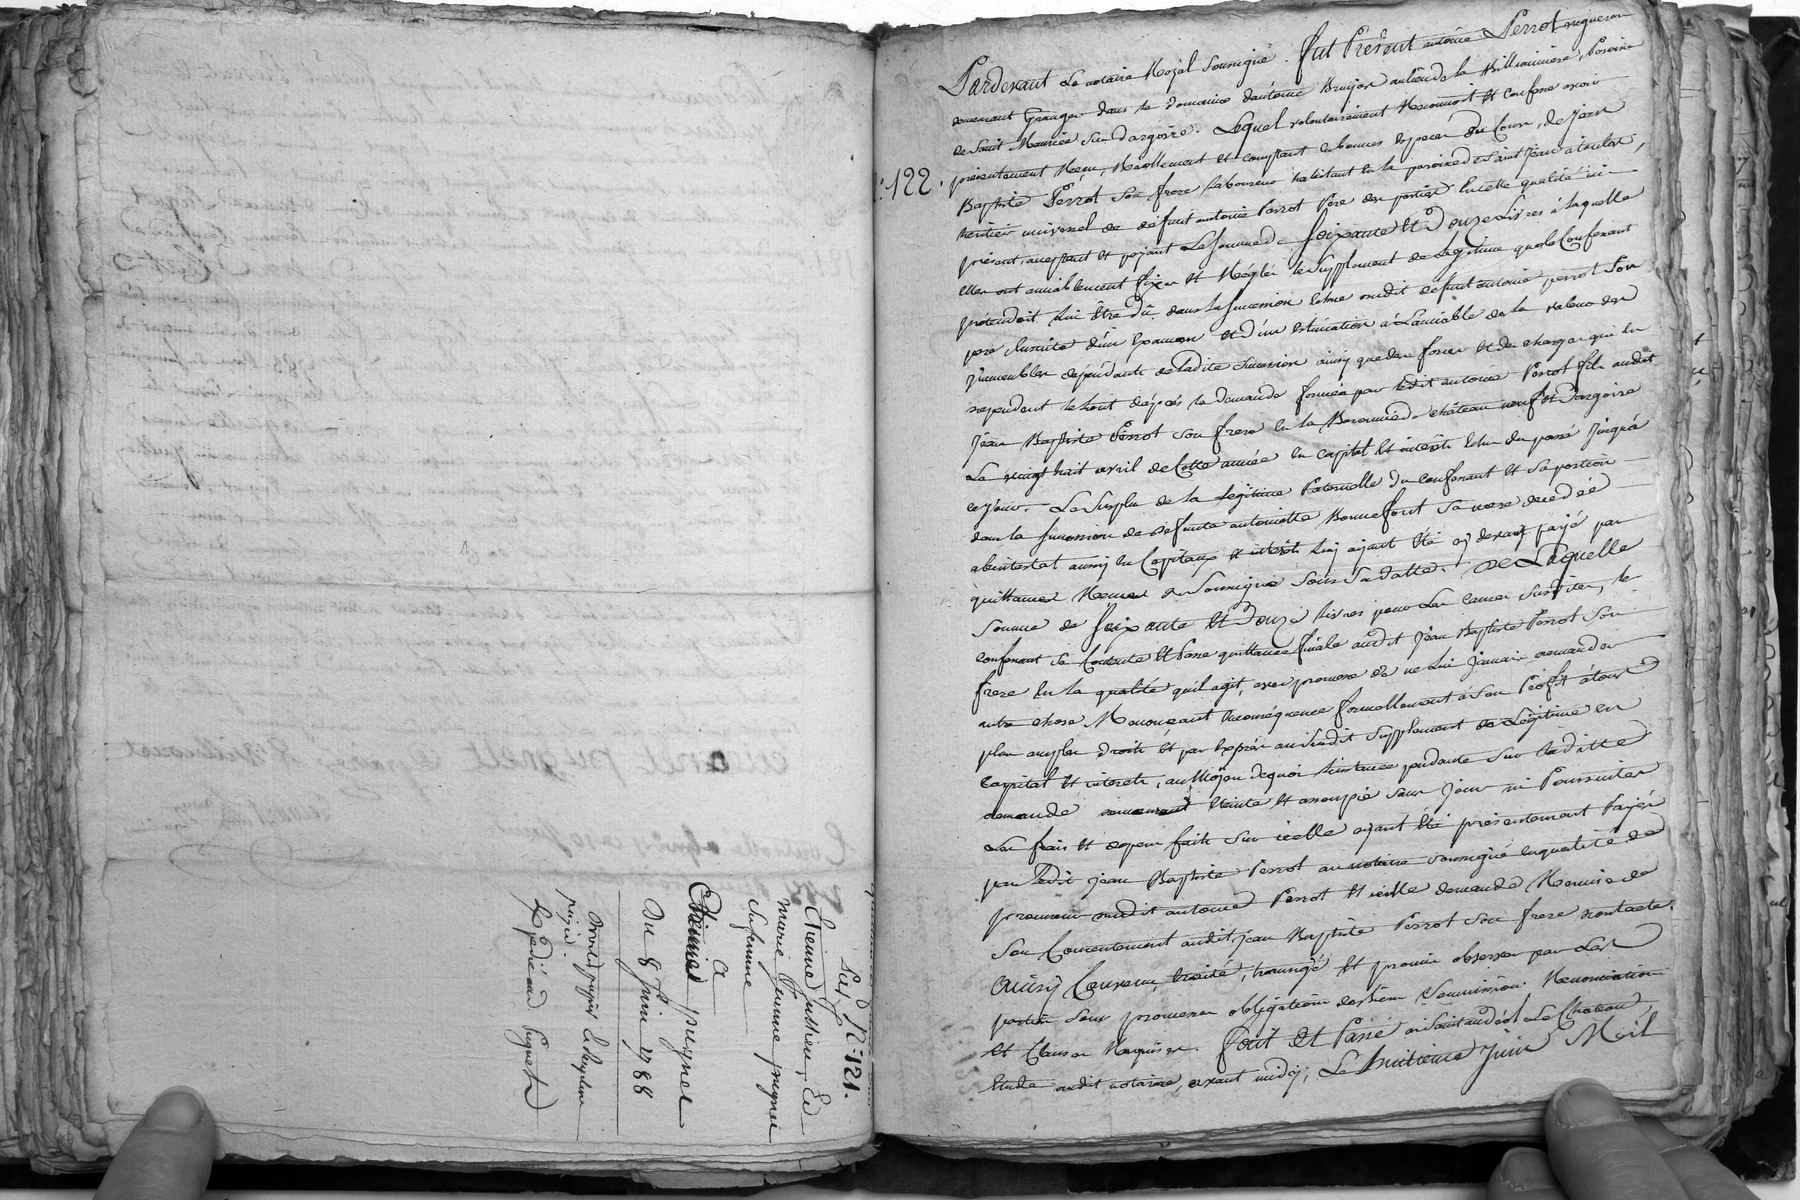 Quittance
Les D. N.º 121.
Etienne Jussieu, Et
marie Jeanne pugnet
Sa femme
a
Etienne pugnet
Du 8 Juin 1788
N.º 122.
Pardevant Le notaire Royal Soussigné. fut Présent antoine Perrot vigneron
demeurant Granger dans le domaine d'antoine Brujas au lieu de la Billianniere, Paroisse
de Saint Maurice Sur dargoire. Lequel volontairement Reconnoit Et confesse avoir
présentement Reçu, Réellement Et comptant en bonnes Especes Du Cours, de Jean
Baptiste Perrot Son frere Laboureur habitant En la paroisse de Saint Jean a toulas,
héritier universel de défunt antoine Perrot Pere des parties En cette qualité ici
présent, acceptant Et payant La Somme de Soixante Et Douze Livres à laquelle
Elles ont amiablement fixé Et Réglé le Supplement de Légitime que le Confessant
prétendoit lui Être Dû dans la Succession Echue dudit defunt antoine perrot Son
pere Ensuite d'un Examen Et d'une Estimation à L'amiable de la valeur des
immeubles dépendants de Ladite Succession ainsy que des forces Et des charges qui en
dependent le tout d'après la demande formée par Ledit antoine Perrot fils audit
Jean Baptiste Perrot Son frere En la Baronnie de château neuf Et Dargoire
Le vingt huit avril de Cette année En capital Et intérêts Echus du passé Jusqu'à
ce Jour. Le Surplus de la Légitime Paternelle Du confessant Et Sa portion
dans la Succession de defunte antoinette Bonnefont Sa mere decedée
abintestat aussy En Capitaux Et intérêts luy ayant Eté cy devant payé par
quittance Reçue du Soussigné Sous Sa datte. De Laquelle
Somme de Soixante Et Douze Livres pour Les causes Susdites, le
confessant Se Contente Et Passe quittance finale audit Jean Baptiste Perrot Son
frere En la qualité qu'il agit, avec promesse de ne lui Jamais demander
autre chose Renonçant En conséquence formellement à Son Profit à tous
plus amples droits Et par Exprès audit Supplement de Légitime En
Capital Et intérêts, au Moyen de quoi L'instance pendante Sur laditte
demande demeurera Eteinte Et assoupie Sans Jour ni Poursuites
Les frais Et depens faits Sur icelle ayant Eté présentement Payés
par Ledit Jean Baptiste Perrot au notaire Soussigné En qualité de
procureur dudit antoine Perrot Et icelle demande Remise de
Son Consentement audit Jean Baptiste Perrot Son frere
Ainsy Convenu, traité, transigé Et promis observer par Les
parties Sous promesses obligations des biens Soumission Renonciation
Et Clauses Requises. Fait Et Passé à Saint andéol Le Chateau
Etude dudit notaire, avant midy, Le huitieme Juin Mil